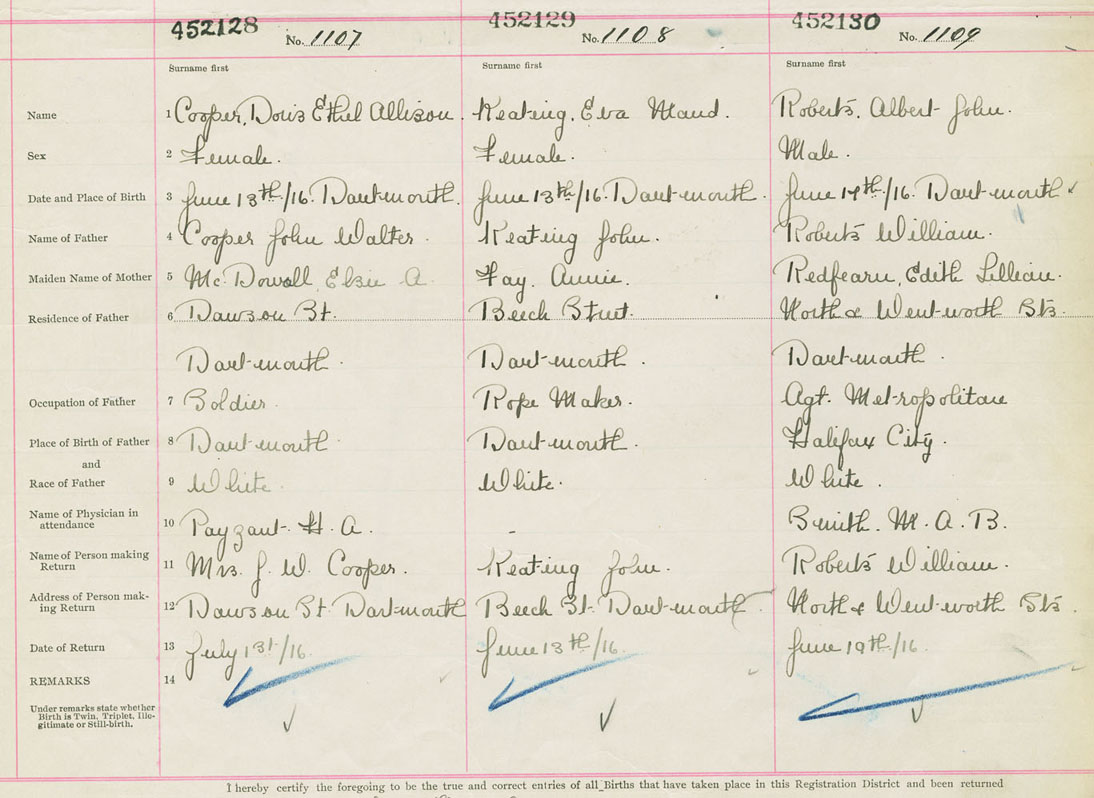 452128 No. 1107 452129 No. 1108 452130 No. 1109
Surname first Surname first Surname first
Name 1 Cooper, Doris Ethel Allison. Keating, Eva Maud. Roberts, Albert John.
Sex 2 Female. Female. Male.
Date and Place of Birth 3 June 13th/16. Dartmouth. June 13th/16. Dartmouth. June 17th/16. Dartmouth
Name of Father 4 Cooper John Walter. Keating John. Roberts William.
Maiden Name of Mother 5 McDowall, Elsie A. Fay, Annie. Redfearn, Edith Lillian.
Residence of Father 6 Dawson St. Beech Street. North & Wentworth Sts.
Dartmouth. Dartmouth. Dartmouth.
Occupation of Father 7 Soldier. Rope Maker. Agt. Metropolitan
Place of Birth of Father 8 Dartmouth Dartmouth. Halifax City.
and
Race of Father 9 White. White. White.
Name of Physician in
attendance 10 Payzant. H. A. - Smith. M. A. B.
Name of Person making
Return 11 Mrs. J. W. Cooper. Keating John. Roberts William.
Address of Person mak-
ing Return 12 Dawson St. Dartmouth Beech St. Dartmouth North & Wentworth Sts.
Date of Return 13 July 13t/16. June 13th/16. June 19th/16.
REMARKS 14
Under remarks state whether
Birth is Twin, Triplet, Ille-
gitimate or Still-birth.
I hereby certify the foregoing to be the true and correct entries of all Births that have taken place in this Registration District and been returned